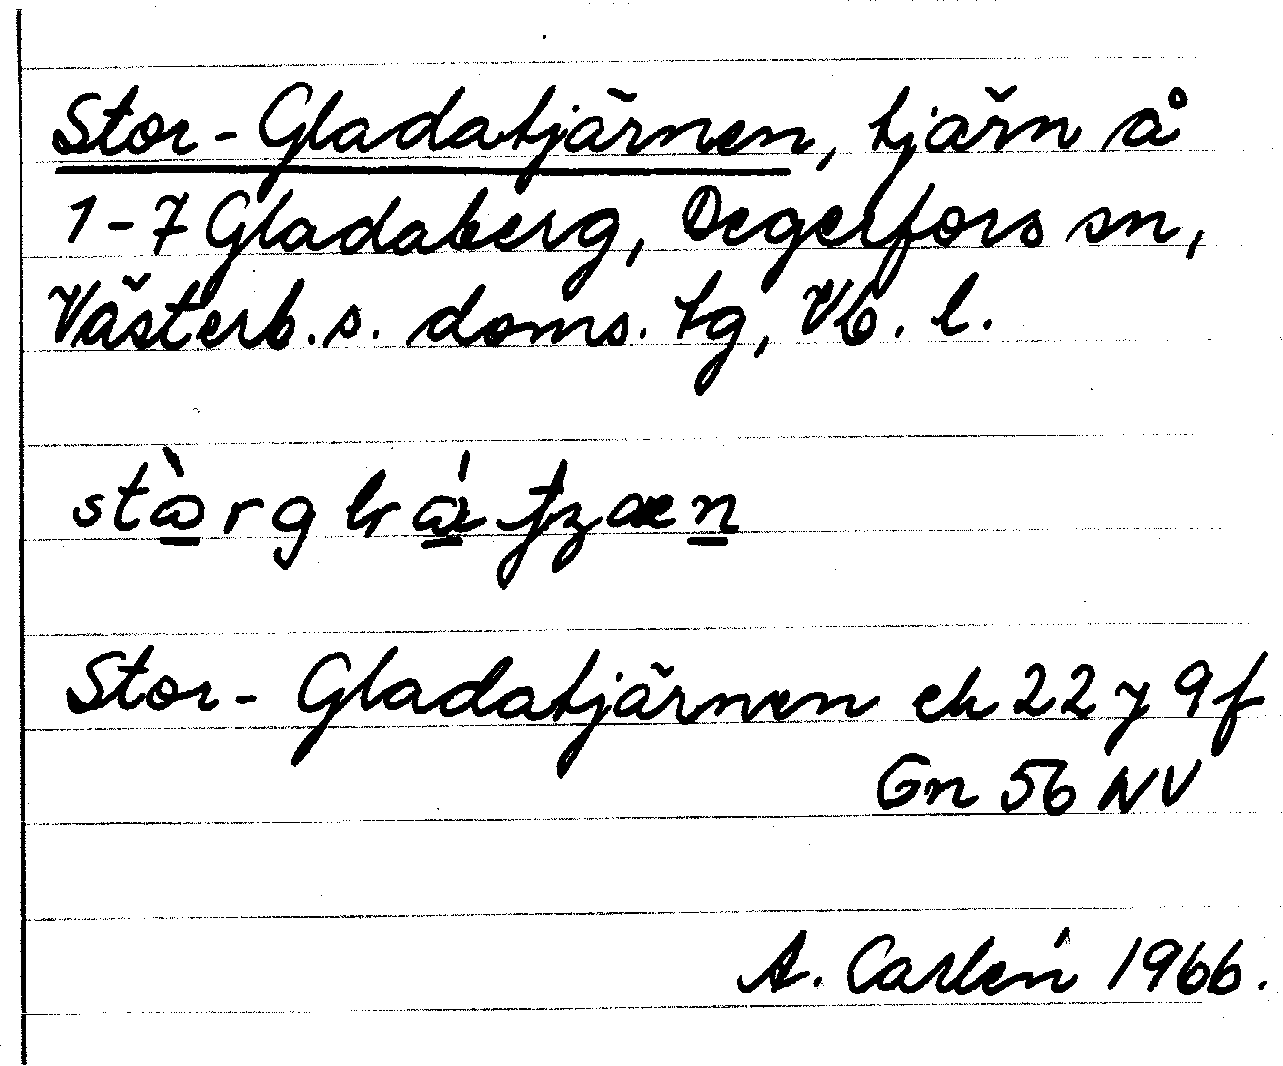 Stor-Gladatjärnen, tjärn å
1-7 Gladaberg, Degerfors sn,
Västerb. s. doms. tg, Vb. l.
Stor-Gladatjärnen ek 22 7 9 f
Gn 56 NV
A. Carlén 1966.